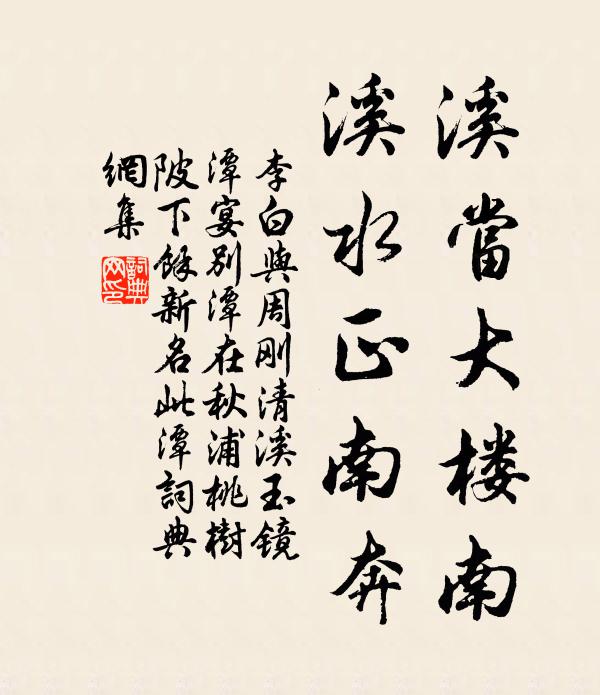 溪當大楼南
溪水正南奔
李白與周刚清溪玉镜
潭宴别潭在秋浦桃樹
陂下餘新名此潭詞典
網集
詞典
网印